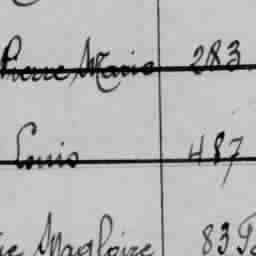 Pierre Marie 283
Louis 487
Magloire 83